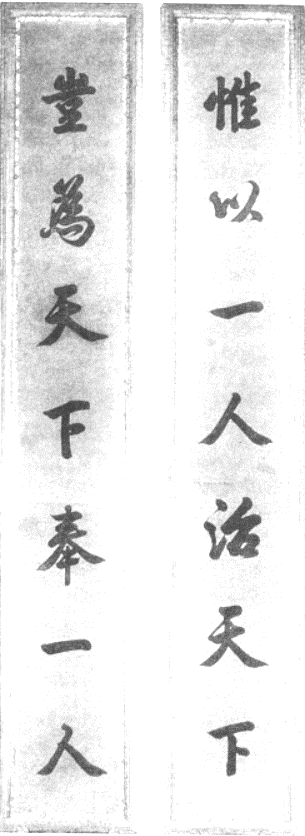 惟以一人治天下
豈為天下奉一人